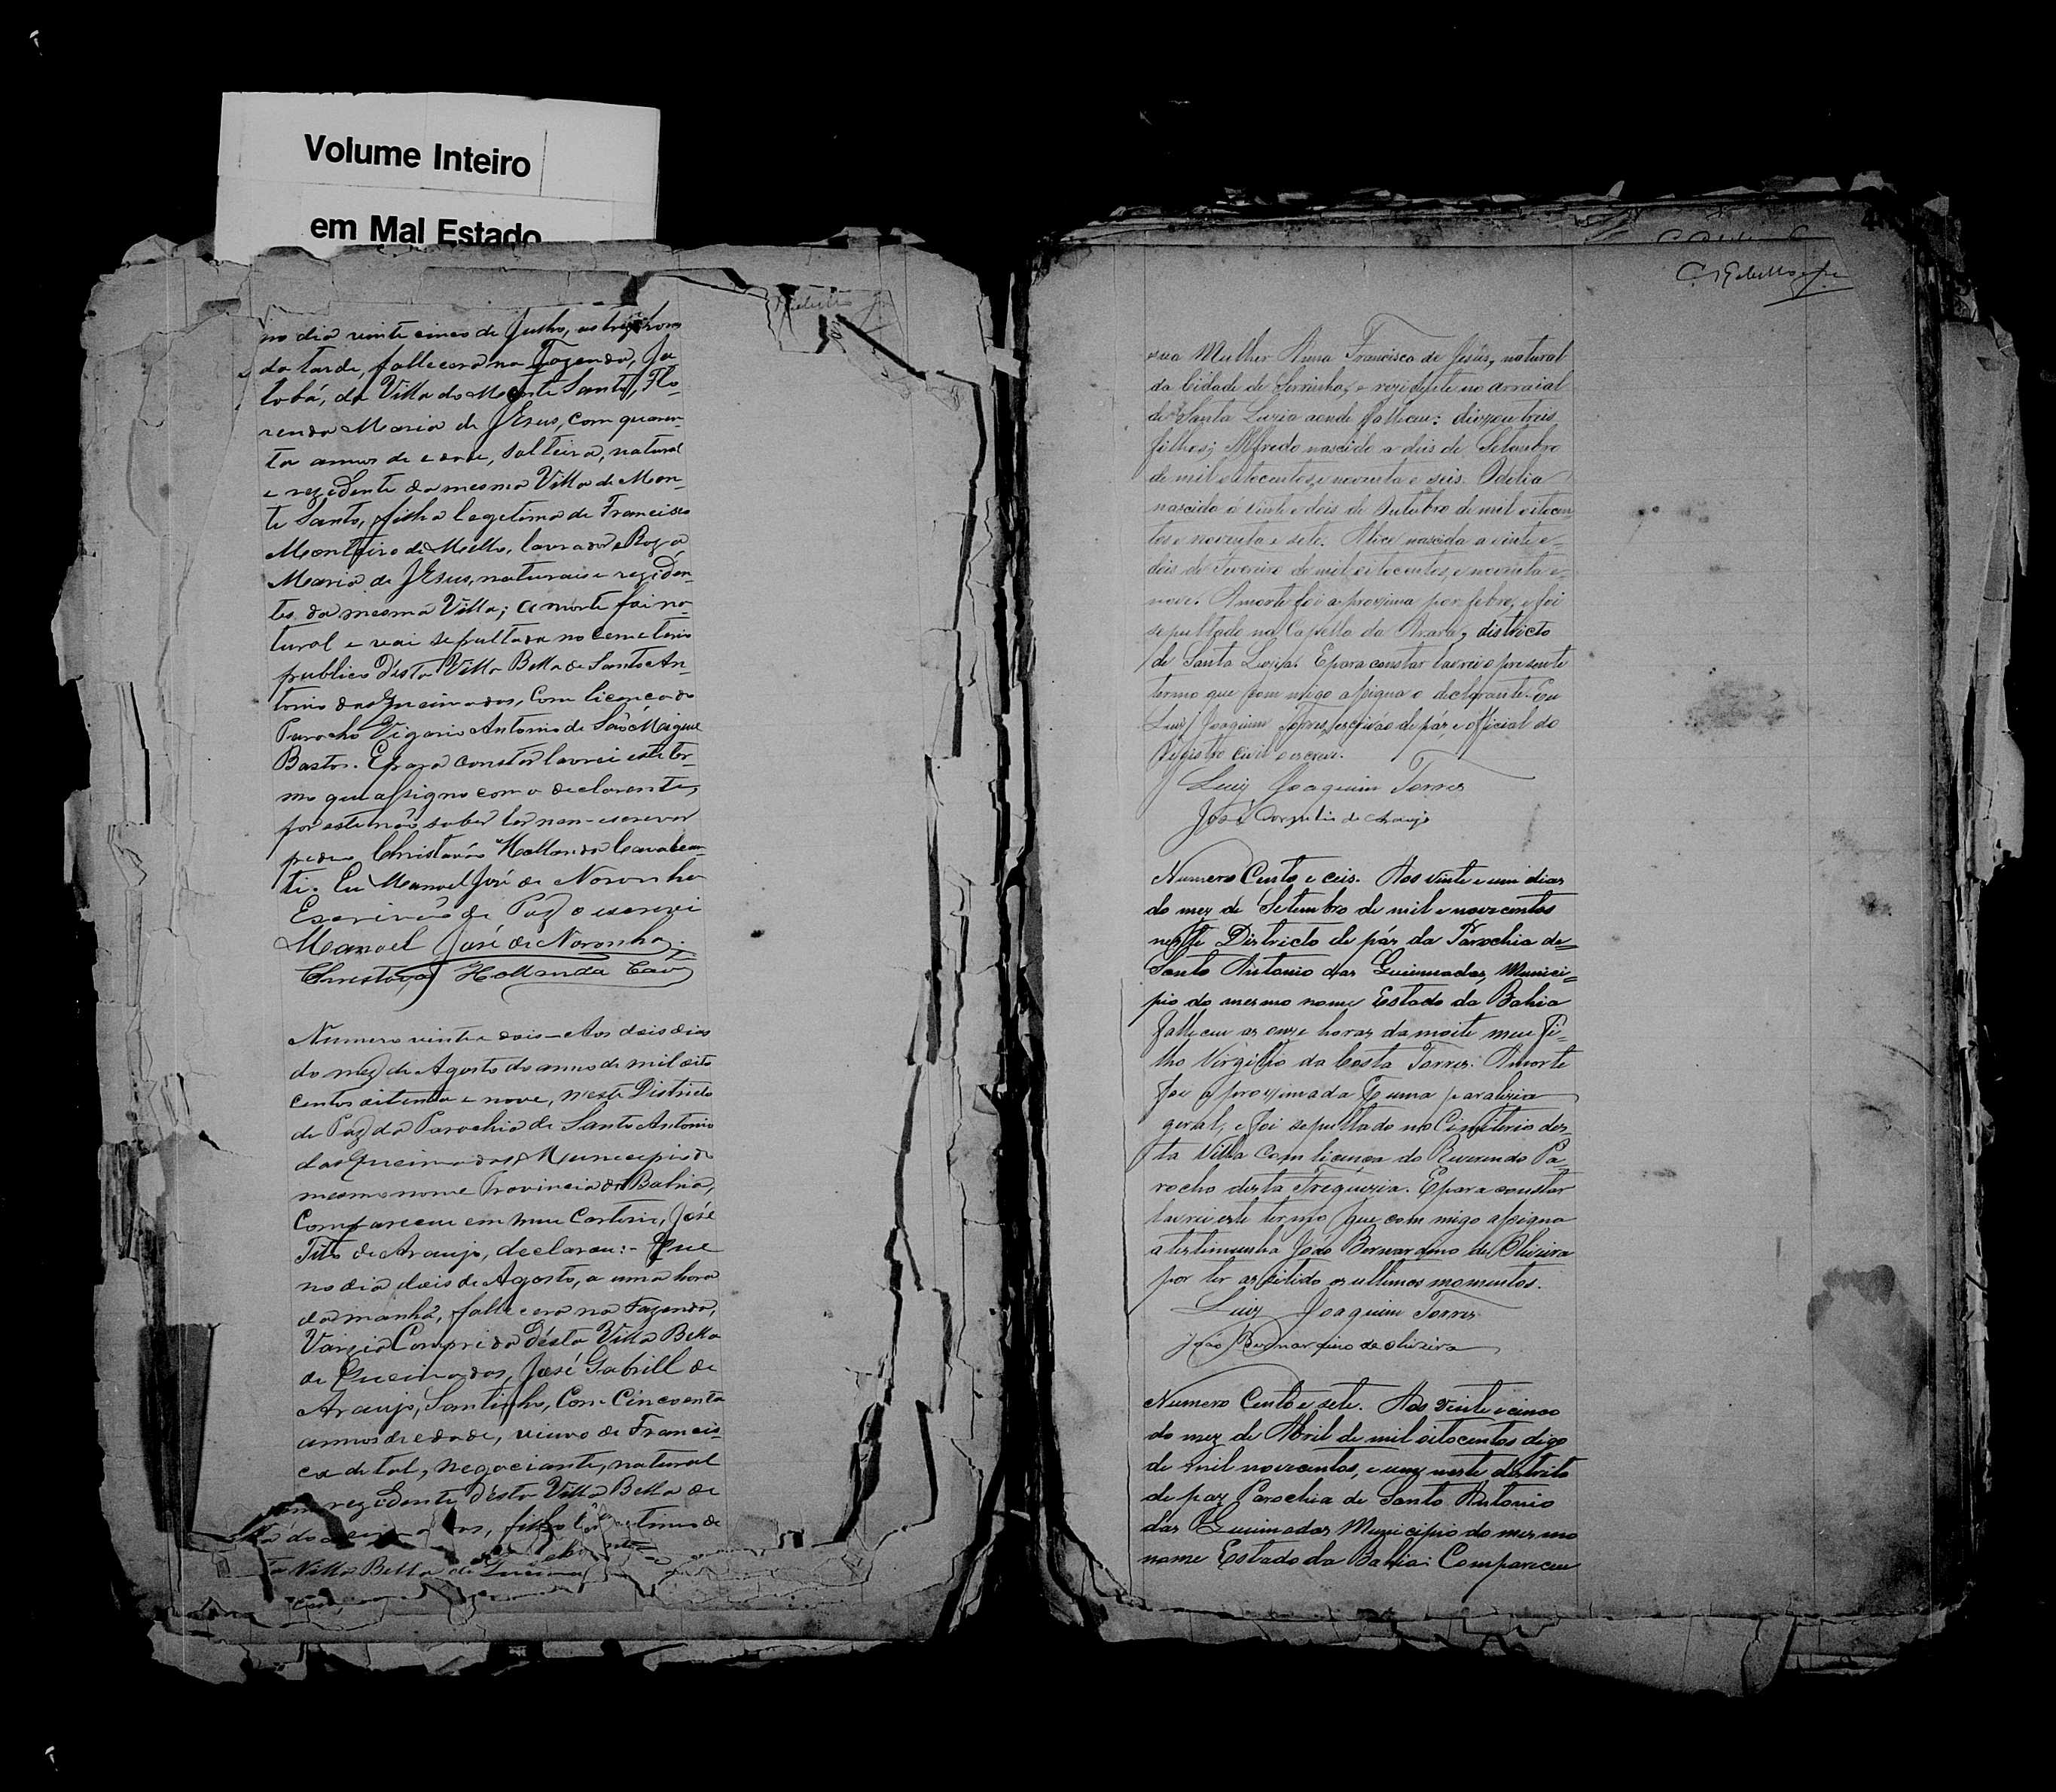 Volume Inteiro
em Mal Estado
no dia vinte cinco de Julho, as tres horas
da tarde, fallecera na Fazenda, Ja
tobá, da Villa do Monte Santo, Flo-
renda Maria de Jesus, com quaren-
ta annos de edade, solteira, natural
e rezidente da mesma Villa de Mon-
te Santo, filha legitima de Francisco
Monteiro de Mello, lavrador e Roza
Maria de Jesus, naturaes e reziden-
tes da mesma Villa; a morte foi na-
tural e vai sepultada no cemeterio
publico d'esta Villa Bella de Santo An-
tonio das Queimadas, com licença do
Parocho Vigario Antonio de São Miguel
Bastos. E para constar lavrei este ter-
mo que assigno com o declarante,
por este não saber ler nem escrever
pedeo Christovão Hollanda Cavalcan-
ti. Eu Manoel José de Noronha
Escrivão de Paz o escrevi
Manoel José de Noronha.
Christovão Hollanda Cavti
Numero vinte e dois – Aos dois dias
do mez de Agosto do anno de mil oito
centos oitenta e nove, neste Districto
de Paz da Parochia de Santo Antonio
das Queimadas, Municipio do
mesmo nome Provincia da Bahia,
Compareceu em meu Cartorio, José
Tito de Araujo, declarou:- Que
no dia dois de Agosto, a uma hora
da manhã, fallecera na Fazenda,
Varzia Comprida d'esta Villa Bella
de Queimadas, José Gabrill de
Araujo, Santinho, Com Cincoenta
annos de edade, viuvo de Francis-
ca de tal, negociante, natural
rezidente d'esta Villa Bella de
filho legitimo de
ta Villa Bella de
C. Rebello Jr.
sua Mulher Anna Francisca de Jesús, natural
da Cidade de Serrinha, e rezidente no arraial
de Santa Luzia aonde falleceu: deixou tres
filhos; Alfredo nascido a dois de Setembro
de mil oitocentos e noventa e seis. Odilia
nascida á vinte e dois de Outubro de mil oitocen
tos e noventa e sete. Alice nascida a vinte e-
dois de Fevereiro de mil oitocentos e noventa e-
nove. A morte foi a proxima por febre, e foi
sepultado na Capella da Arara, districto
de Santa Luzia. E para constar lavrei o presente
termo que com migo assigna o declarante. Eu
Luiz Joaquim Torres, escrivão de páz e official do
Registro Civil o escrevi.
Luiz Joaquim Torres
José Cornelio de Araujo
Numero Cento e ceis. Aos vinte e um dias
do mez de Setembro de mil e novecentos
neste Districto de páz da Parochia de-
Santo Antonio das Queimadas, Munici-
pio do mesmo nome Estado da Bahia
falleceu as onze horas da noite meu Fi-
lho Virgilio da Costa Torres: A morte
foi a proximada a uma paralizia
geral, e foi sepultado no Cemiterio des-
ta Villa com licença do Reverendo Pa-
rocho desta Freguezia. E para constar
lavrei este termo que com migo assigna
a testimunha João Bernardino de Oliveira
por ter assitido os ultimos momentos.
Luiz Joaquim Torres
João Bernardino de Oliveira
Numero Cento e sete. Aos vinte e cinco
do mez de Abril de mil oitocentos digo
de mil novecentos, e um, neste distrito
de paz Parochia de Santo Antonio
das Queimadas Municipio do mesmo
nome Estado da Bahia: Compareceu